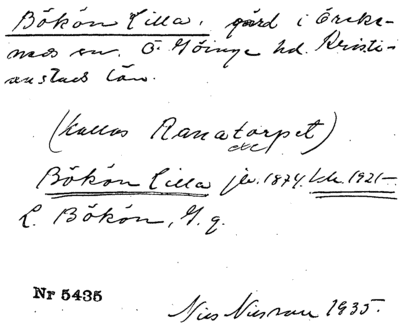 Bökön Lilla, gård i Örke-
neds sn. Ö. Göinge hd. Kristi-
anstads län.
(kallas Ranatorpet)
Bökön Lilla jb. 1874. 1921-
L. Bökön, G. q.
Nr 5435
1935.